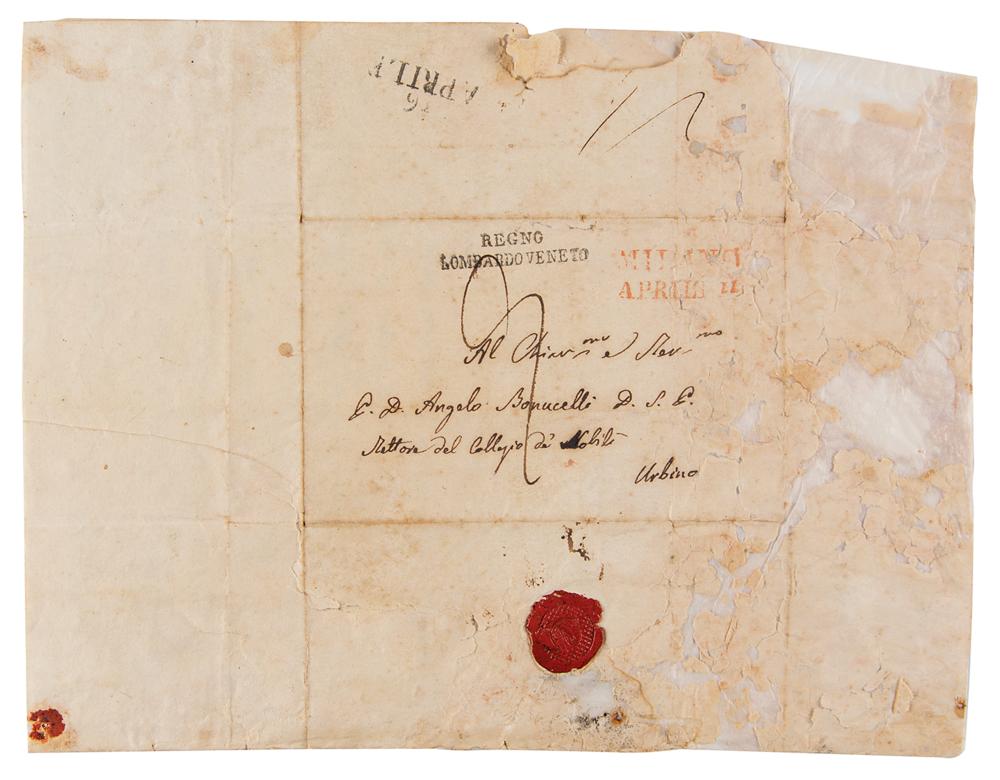 16
APRILE
REGNO
LOMBARDOVENETO
MILANO
APRILE 11
Al Chiar.mo e Rev.mo
P. D. Angelo Bonucelli D. S. P.
Rettore del Collegio de' Nobili
Urbino